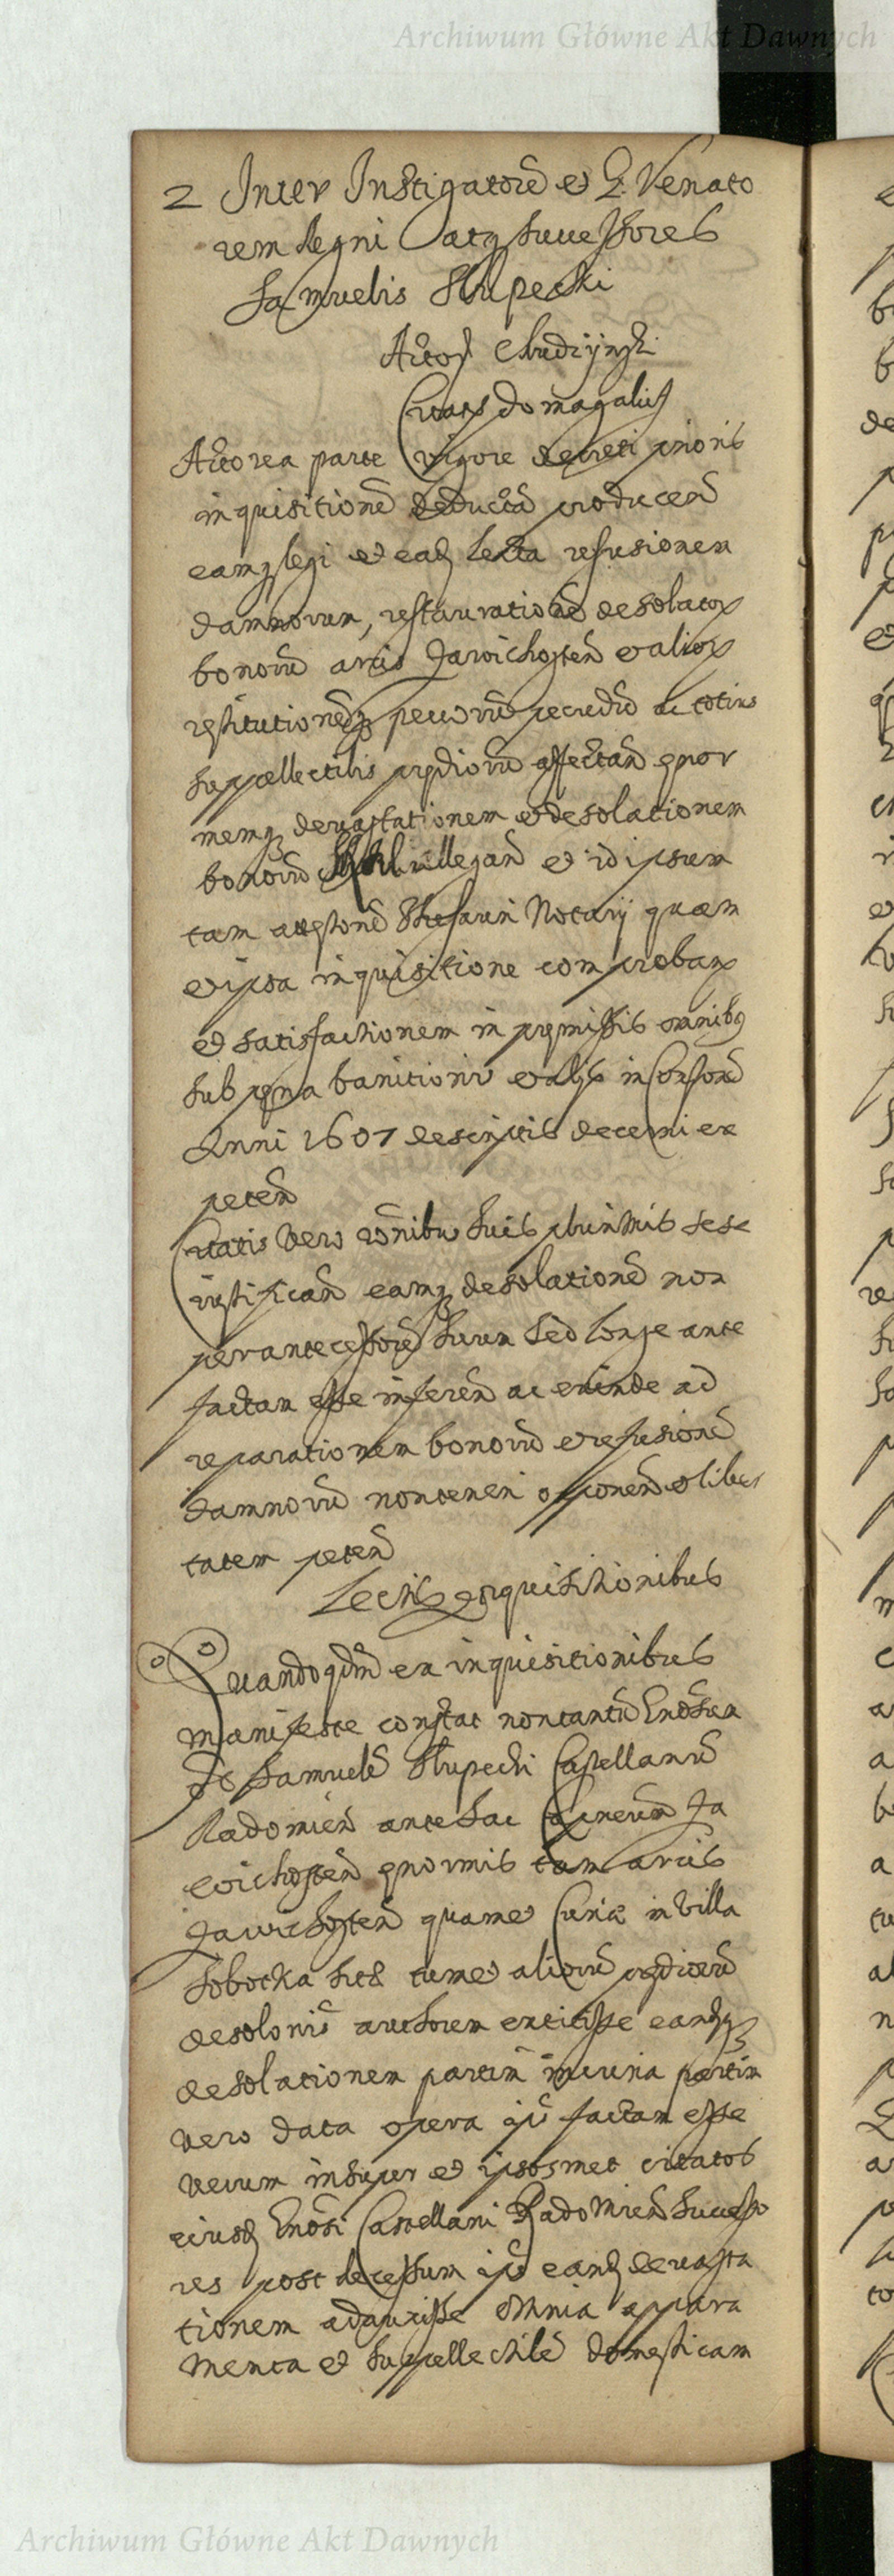 Archiwum Główne Akt Dawnych
2 Inter Instigatorē et G. Venato
rem Regni atq successores
Samuelis Slupecki
Actor Chudzijnski
Citatus Domagalicz
Actorea parte vigore decreti prioris
inquisitionē deductā producen
eamq legi et ea lecta refusionem
damnorum, restaurationē desolator
bonorū arcis Zawichosten et alior
restitutionēq pecorū pecudū ac totius
suppellectilis prediorū affectan enor
memq devastationem et desolationem
bonorū allegan et id ipsum
tam Thesauri Notarij quam
et ipsa inquisitione comproban
et satisfactionem in premissis omnibq
sub pena banitionis et alijs in Consone
Anni 1607 descriptis decerni ex
peten
Citatis vero rōnibus suis plurimis sese
iustifican eamq desolationē non
per antecessorē suum sed longe ante
factam esse inferen ac exinde ad
reparationem bonorū et refusionē
damnorū non teneri opponen et liber
tatem peten
Lectis inquisitionibus
Quandoqdm ex inquisitionibus
manifeste constat non tantū Gnosum
Samuelē Slupecki Castellanū
Radomien antehac Za
wichosten enormis tam arcis
Zawichosten quam et Curiæ in Villa
Sobotka tum et aliorū prediorū
desolonis authorem extitisse eandq
desolationem partim incuria partim
vero data opera ips factam esse
verum insuper et ipsosmet citatos
eiusd Gnosi Castellani Radomien Successo
res post decessum ips eand devasta
tionem adauxisse omnia appara
menta et suppellectilē domesticam
Archiwum Główne Akt Dawnych